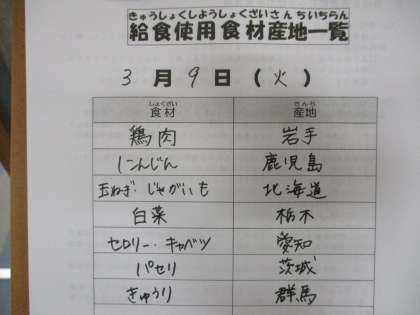 きゅうしょくしようしょくざいさんちいちらん
給食使用食材産地一覧
3月9日(火)
しょくざい さんち
食材 産地
鶏肉 岩手
にんじん 鹿児島
玉ねぎ・じゃがいも 北海道
白菜 栃木
セロリー・キャベツ 愛知
パセリ 茨城
きゅうり 群馬